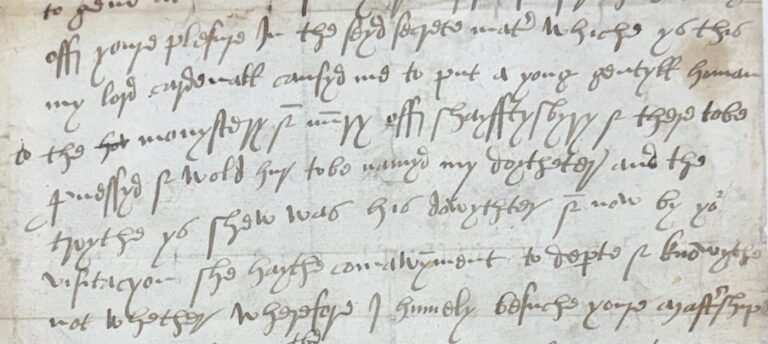 to
off youre plesure In the seyd secrete mat' whiche ys this
my lord cardenall causyd me to put a yong gentyll homan
to the monystery & off shafftysbyry & there tobe
& wold hur tobe namyd my doythter and the
trvythe ys shew was his dowythter & now by yo'
visitacyon she haythe comawnment to depte & knowythe
not whether wherefore I humely beseche youre mastership
the